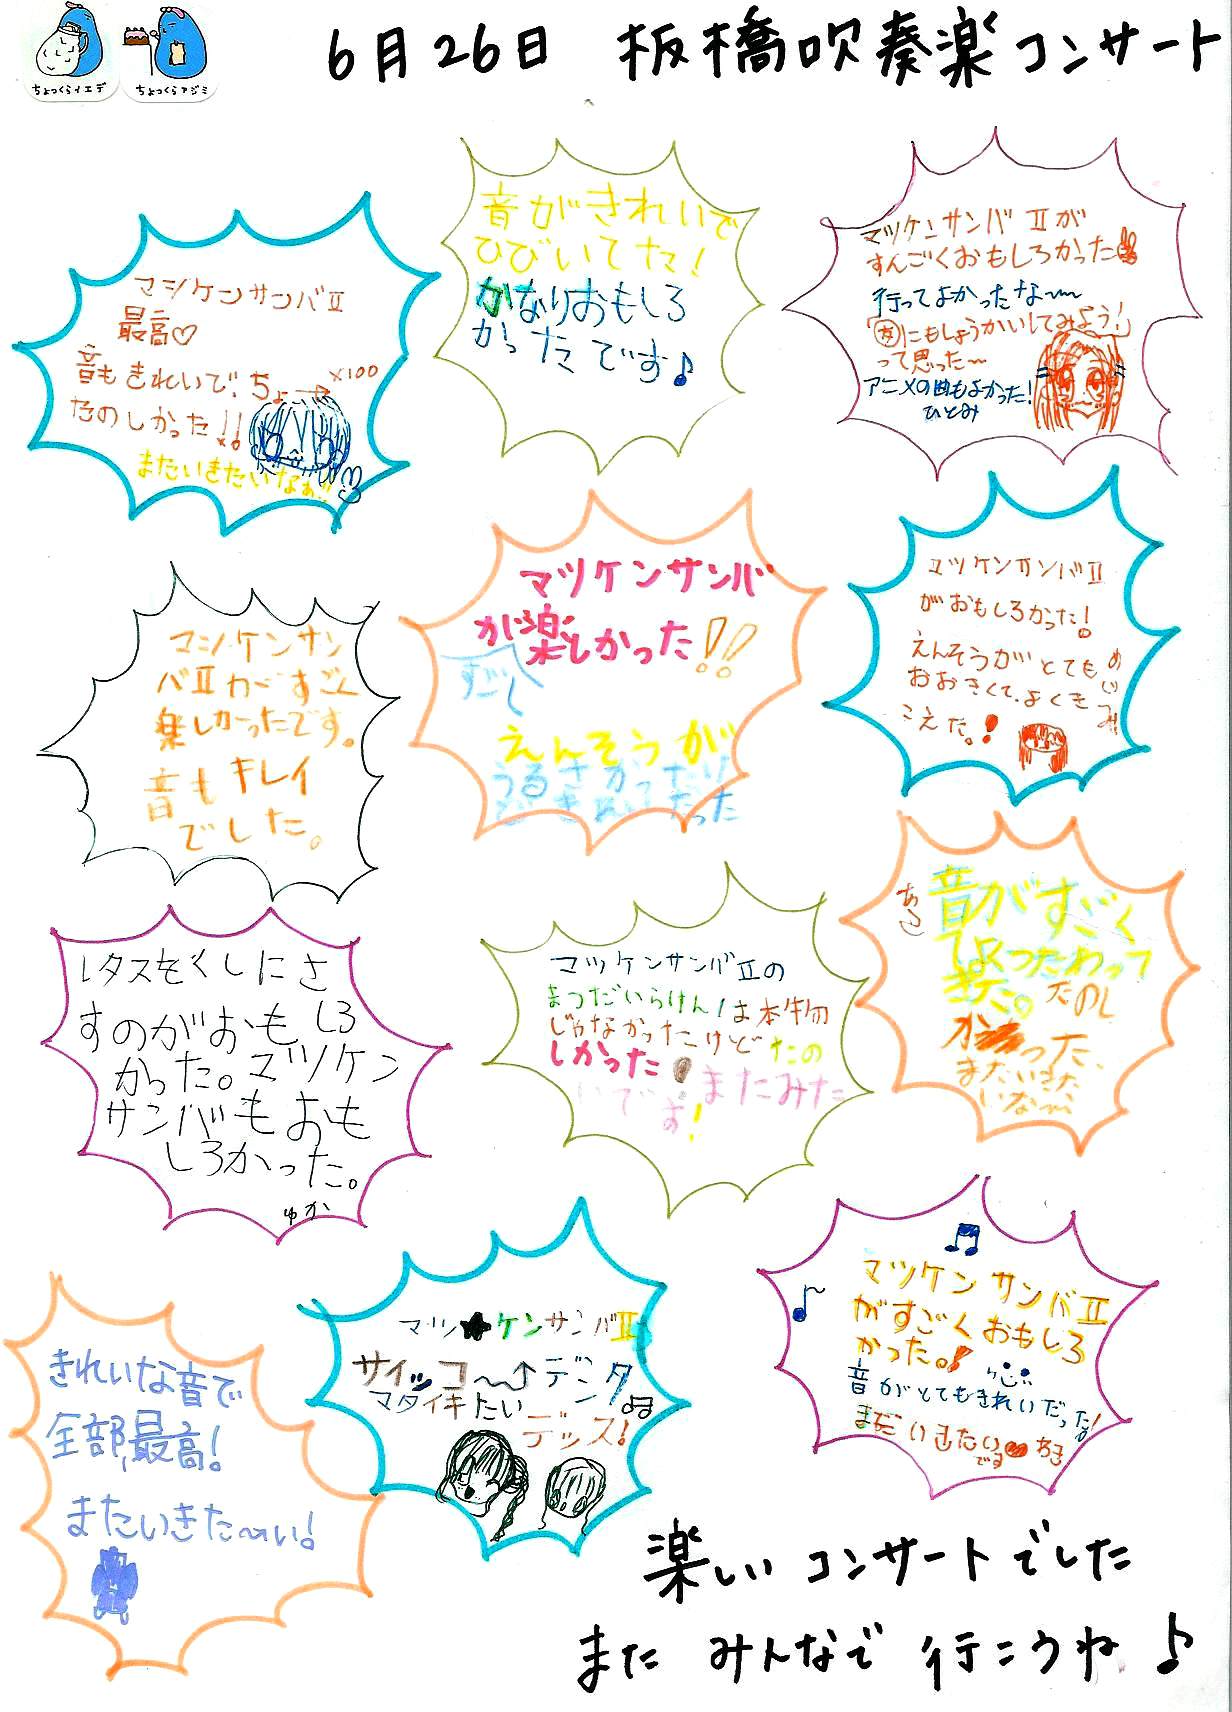 ちょっくらイエデ
ちょっくらアジミ
6月26日 板橋吹奏楽コンサート
音がきれいで
ひびいてた!
かなりおもしろ
かったです♪
マツケンサンバⅡが
すんごくおもしろかった
行ってよかったな〜
にもしょうかいしてみよう!」
って思った〜
アニメの曲もよかった!
ひとみ
マツケンサンバⅡ
最高♡
音もきれいで、ちょーx100
たのしかった!!
またいきたいなぁ!!
マツケンサンバ
が楽しかった!!
すごく
えんそうが
マツケンサンバⅡ
がおもしろかった!
えんそうがとても
おおきくて、よくき
こえた。!
めいみ
マツケンサン
バⅡがすごく
楽しかったです。
音もキレイ
でした。
あさこ
音がすごく
たのし
かった、
またいきた
いな〜
レタスをくしにさ
すのがおもしろ
かった。マツケン
サンバもおも
しろかった。
ゆか
マツケンサンバⅡの
まつだいらけん!は本物
じゃなかったけどたの
しかった!またみた
いです!
マツケンサンバⅡ
がすごくおもしろ
かった。!
音がとてもきれいだった!
まだいきたい
です
あき
マツ★ケンサンバⅡ
サイッコ〜↑デシタ
マタイキたい
デッス!
きれいな音で
全部、最高!
またいきた〜い!
楽しいコンサートでした
またみんなで行こうね♪